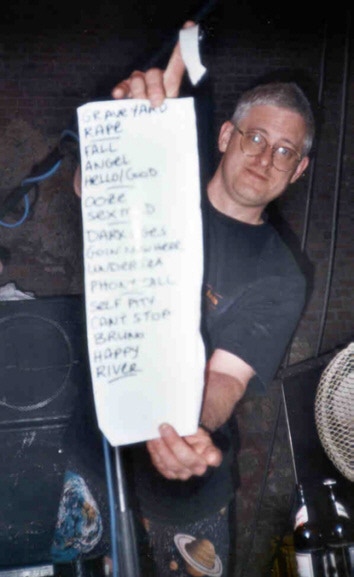 GRAVEYARD
RAPE
FALL
ANGEL
HELLO/GOOD
OOZE
SEX
DARK AGES
GOIN NOWHERE
UNDERSEA
PHONE CALL
SELF PITY
CANT STOP
BRUNO
HAPPY
RIVER